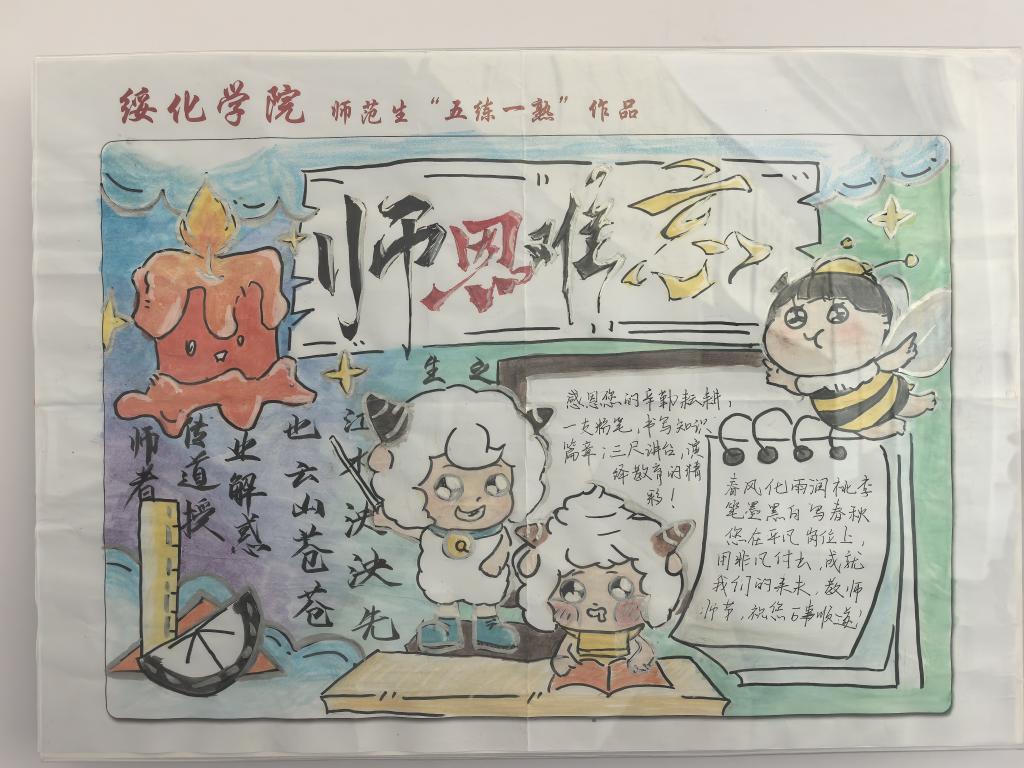 绥化学院 师范生“五练一熟”作品
师恩难忘
师者
传道授
业解惑
也云山苍苍
江水泱泱先
生之
感恩您的辛勤耘耕,
一支粉笔,书写知识
篇章;三尺讲台,演
绎教育的精
彩!
春风化雨润桃李
笔墨黑白写春秋
您在平凡岗位上,
用非凡付去,成就
我们的未来,教师
师节,祝您万事顺遂!
a